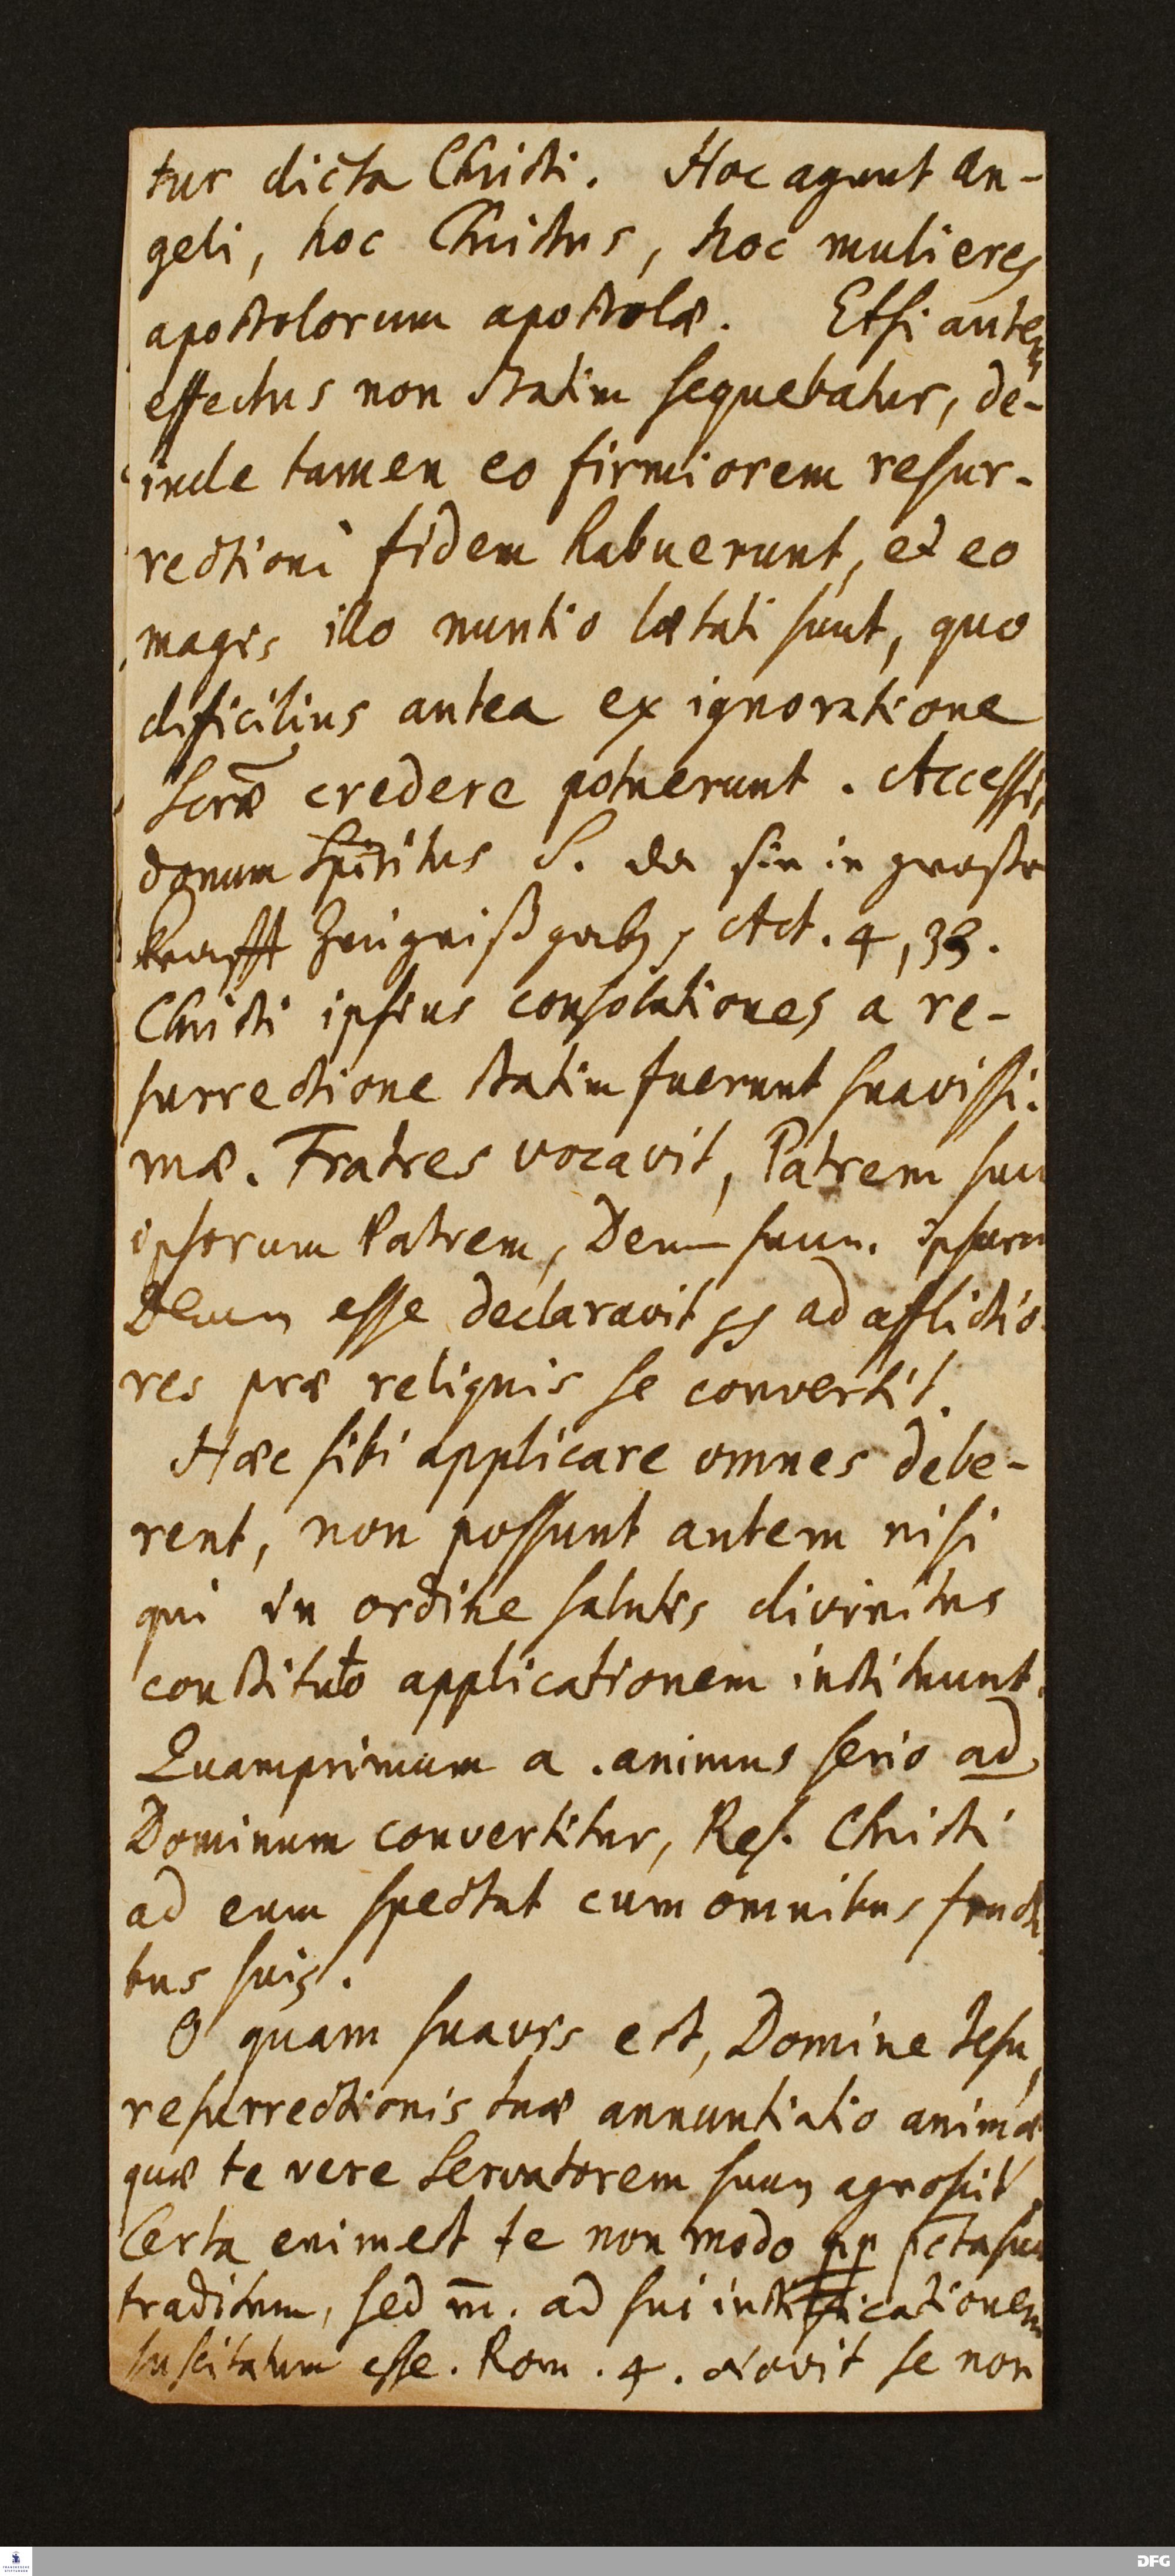 tur dicta Christi. Hoc agunt An-
geli, hoc Christus, hoc mulieres
apostolorum apostolæ. Etsi autem
effectus non statim sequebatur, de-
inde tamen eo firmiorem resur-
rectioni fidem habuerunt, et eo
magis illo nuntio lætati sunt, quo
dificilius antea ex ignoratione
Scræ credere potuerunt. Accessit
donum Spiritus S. da sie in großer
Krafft Zeugniß gaben, Act. 4, 33.
Christi ipsius consolationes a re-
surrectione statim fuerunt suavissi-
mæ. Fratres vocavit, Patrem suu
ipsorum Patrem, Deum suum ipsorum
Deum esse declaravit ad afflictio-
res præ reliquis se convertit.
Hæc sibi applicare omnes debe-
rent, non possunt autem nisi
qui in ordine salutis divinitus
constituto applicationem instituunt.
Quamprimum a. animus serio ad
Dominum convertitur, Res. Christi
ad eum spectat cum omnibus fructi
bus suis.
O quam suavis est, Domine Jesu,
resurrectionis tuæ annuntiatio animæ
quæ te vere Servatorem suum agnoscit,
Certa enim est te non modo pp pcta sua
traditum, sed m. ad sui justificationem
suscitatum esse. Rom. 4. Novit se non
DFG